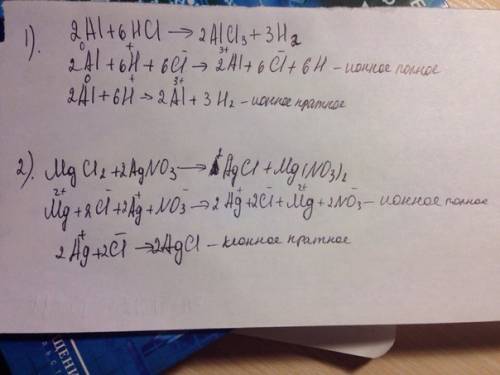 1). 2Al + 6HCl → 2AlCl₃ + 3H₂
2Al⁰ + 6H⁺ + 6Cl⁻ → 2Al³⁺ + 6Cl⁻ + 6H - ионное полное
2Al⁰ + 6H⁺ → 2Al³⁺ + 3H₂ - ионное краткое
2). MgCl₂ + 2AgNO₃ → 2AgCl + Mg(NO₃)₂
Mg²⁺ + 2Cl⁻ + 2Ag⁺ + NO₃⁻ → 2Ag⁺ + 2Cl⁻ + Mg²⁺ + 2NO₃⁻ - ионное полное
2Ag⁺ + 2Cl⁻ → 2AgCl - ионное краткое